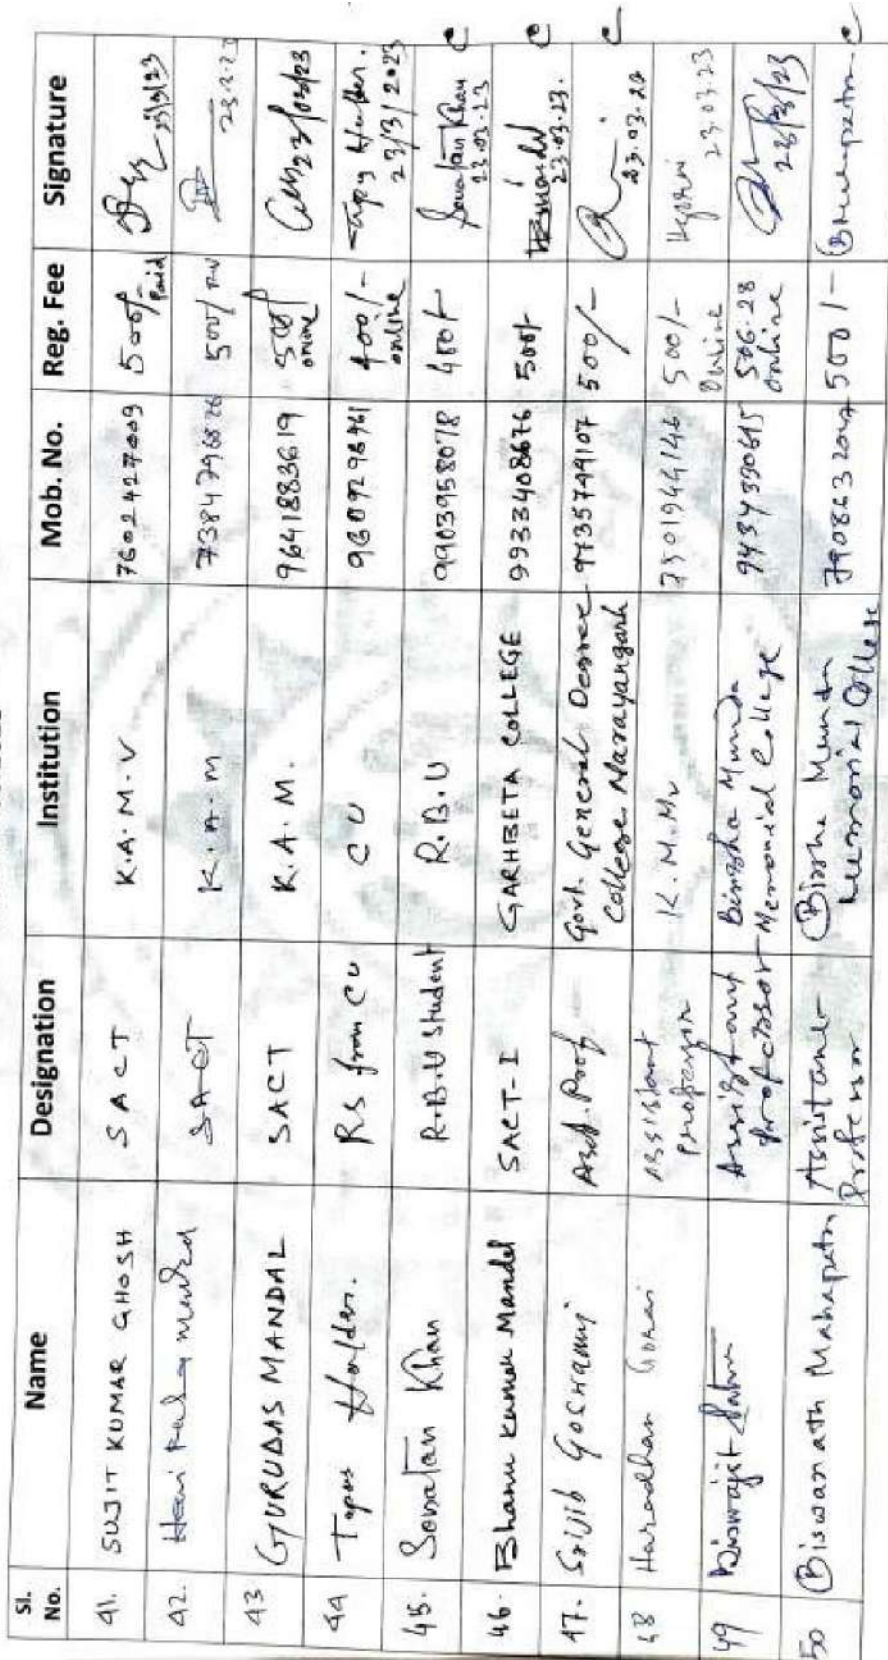 Sl. No. Name Designation Institution Mob. No. Reg. Fee Signature
41. SUJIT KUMAR GHOSH SACT K.A.M.V 7602427009 500/- Paid 23/3/23
42. SACT K.A.M 7384796876 500/-
43 GURUDAS MANDAL SACT K.A.M. 9641883619 500/ online 23/03/23
44 Tapas Halder. RS from CU CU 9609296961 400/- online Tapas Halder. 23/3/2023
45. Sonatan Khan R.B.U Student R.B.U 9903958078 400/- Sonatan Khan 23.03.23
46. Bhanu Kumar Mandal SACT-I GARHBETA COLLEGE 9933408676 500/- BKMandal 23.03.23.
47. Srijib Goswami Asst. Prof Govt. General Degree College Narayangarh 9735749107 500/- 23.03.23
48 Haradhan Gorai Assistant professor K.M.Mv 7501944146 500/- Online 23.03.23
49 Biswajit Patra Assistant Professor Birsha Munda Memorial College 9434330615 506.28 online 23/3/23
50 Biswanath Mahapatra Assistant Professor Birsha Munda Memorial College 500/-